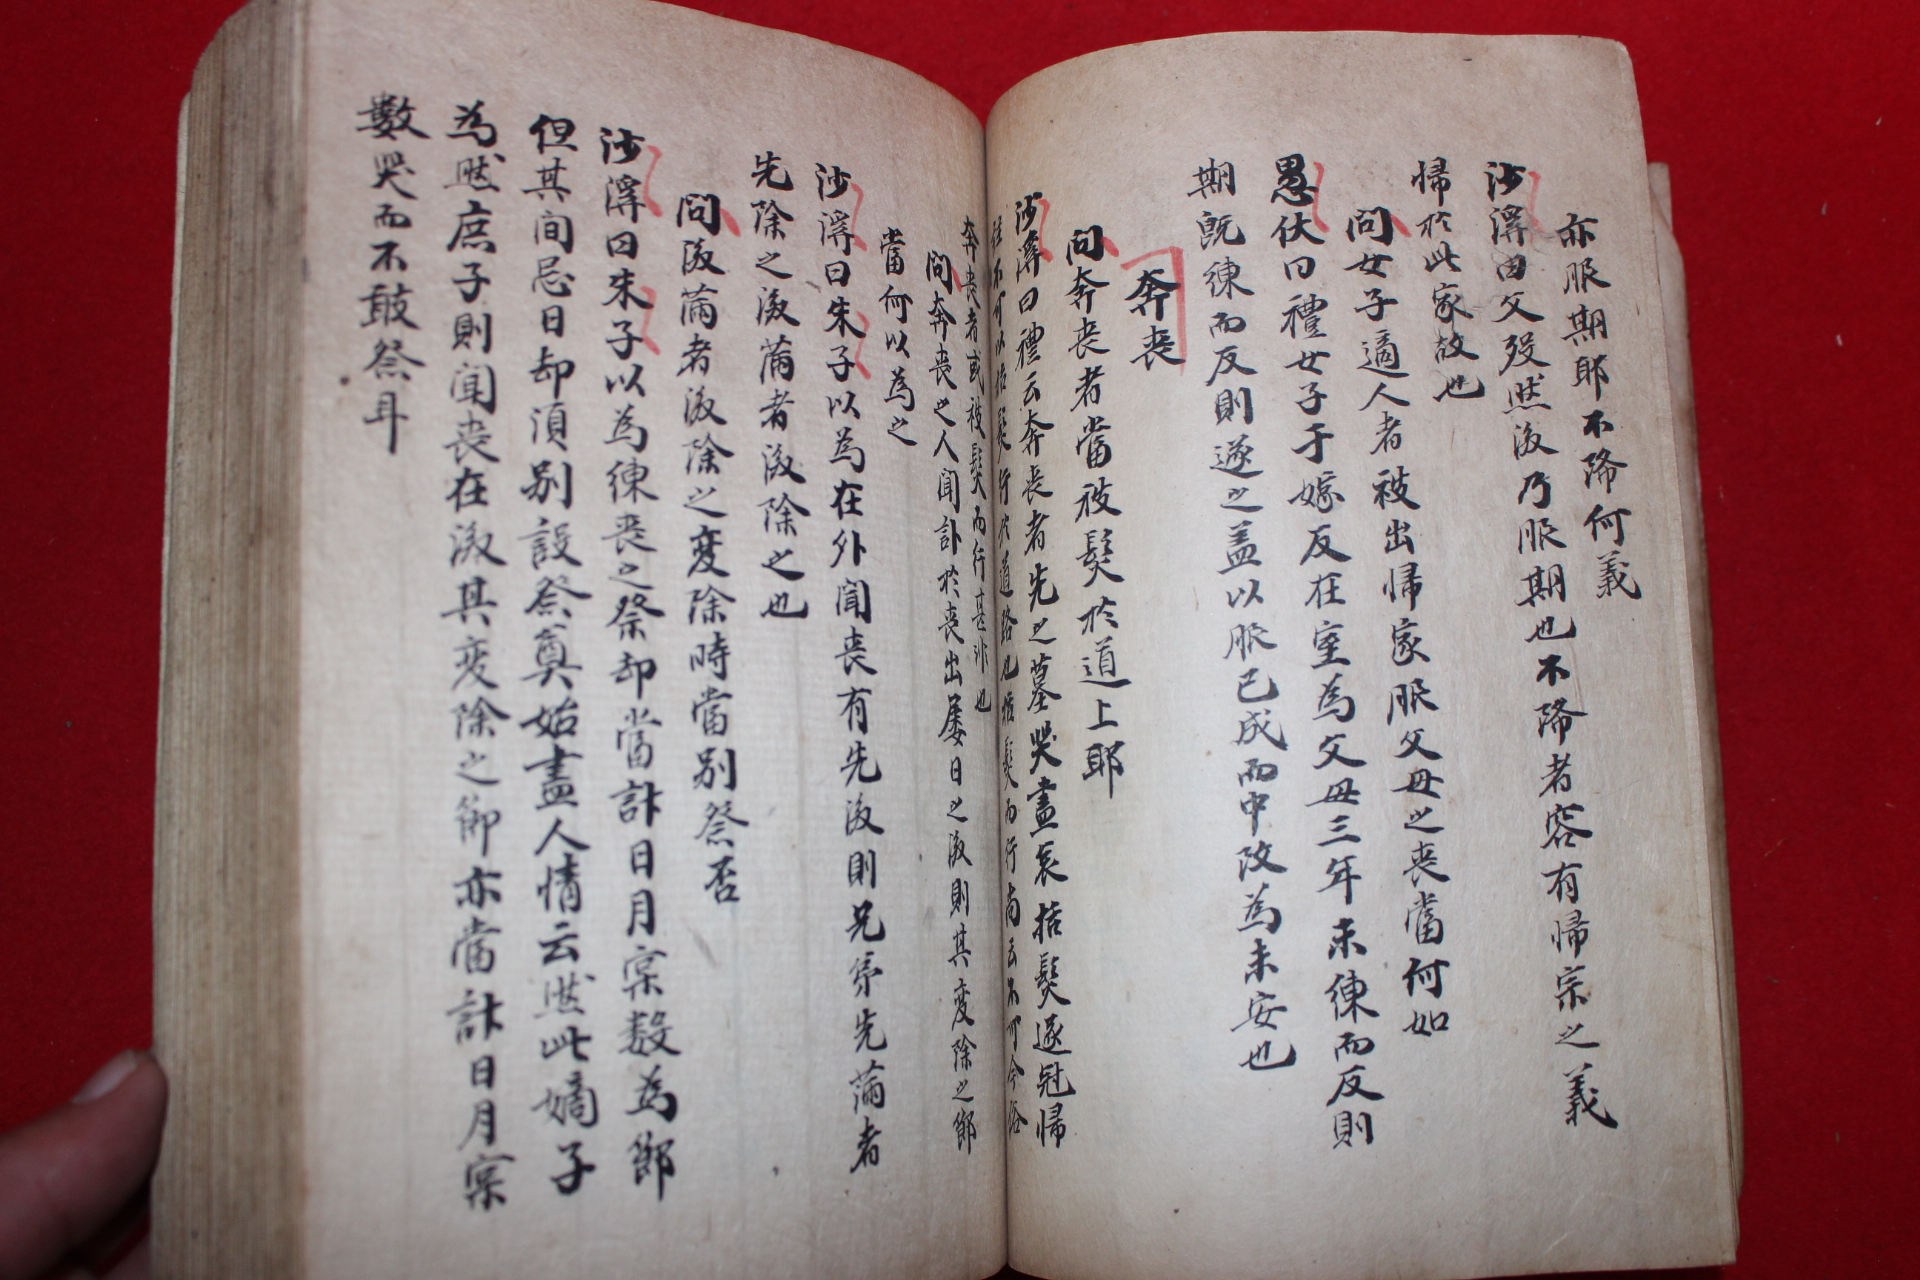 亦服期耶不降何義
沙溪曰父歿然後乃服期也不降者容有帰宗之義
帰於此家故也
問女子適人者被出帰家服父母之喪當何如
愚伏曰禮女子子嫁反在室為父母三年未練而反則
期旣練而反則遂之盖以服已成而中改為未安也
奔喪
問奔喪者當被髮於道上耶
沙溪曰禮云奔喪者先之墓哭盡哀括髮遂冠帰
徃不可以括髮行於道路也括髮而行尚云不可今俗
奔喪者或被髮而行甚非也
問奔喪之人聞訃於喪出屡日之後則其変除之節
當何以為之
沙溪曰朱子以為在外聞喪有先後則兄弟先滿者
先除之後滿者後除之也
問後滿者後除之変除時當別祭否
沙溪曰朱子以為練喪之祭却當計日月宲数為節
但其间忌日却湏别設祭奠始盡人情云然此嫡子
為然庶子則聞喪在後其変除之節亦當計日月宲
數哭而不敢祭耳